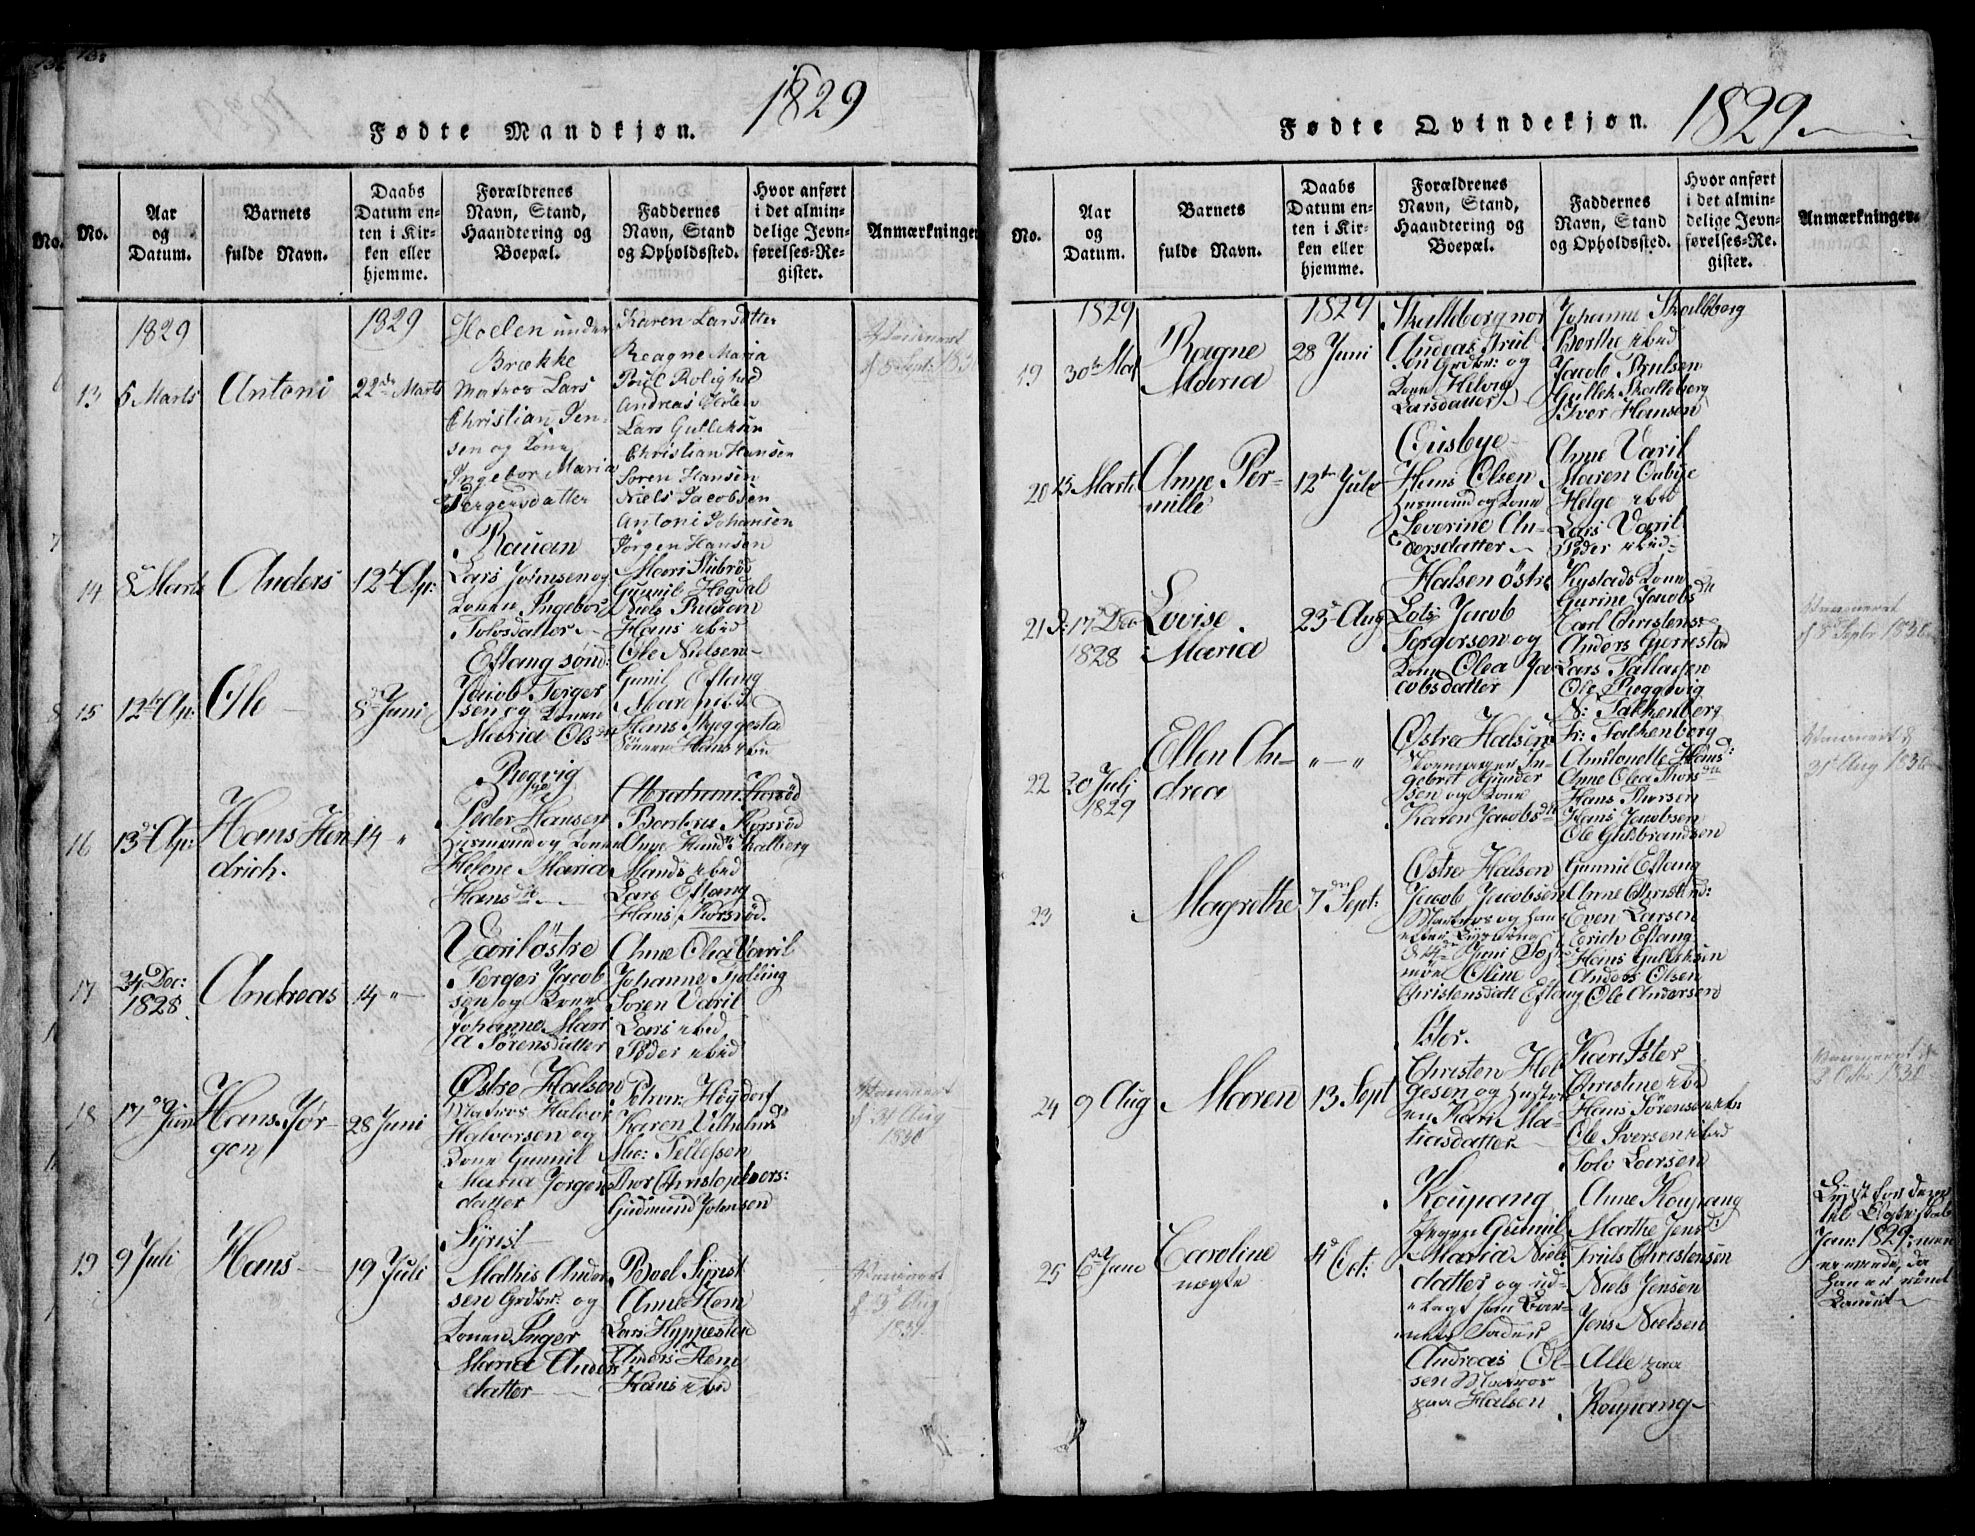 Fødte Mandkjøn. 1829
No.
No.
Aar
og
Datum.
Barnets
fulde Navn.
Daabs
Datum en-
ten i Kir-
ken eller
hjemme.
Forældrenes
Navn, Stand,
Haandtering og
Boepæl.
Faddernes
Navn, Stand
og Opholdssted.
Hvor anført
i det almin-
delige Jevn-
førelses-Re-
gister.
Anmærkninger
1829
1829
13
6 Marts
Antoni
22de Marts
Hoelen under
Brække
Matros Lars
Christian Jen-
sen og Kone
Ingebor Maria
Tergersdatter
Karen Larsdatter
Reagne Maria
Poul Rolighed
Andreas Holen
Lars Gulleksen
Christian Hansen
Søren Hansen
Niels Jacobsen
Antoni Johansen
Jørgen Hansen
14
8de Marts
Anders
12te Apr:
Rauan
Lars Johnsen og
Konen Ingebor
Tolosdatter
Mari Stubrød
Gunnil Høgdal
Niels Rauan
Hans ibid
Ole Nielsen
15
12te Ap:
Ole
8de Juni
Eftang sønd:
Jacob Terger
sen og Konen
Maria Olsdtt
Gunil Eftang
Maren ibid
Hans Skjeggestad
Hans ibid
16
13de Ap:
Hans Hen
drich.
14 "
Røgvig
Peder Hansen
Huusmand og Konen
Helene Maria
Hansdtt
Abraham Korsrød
Anne Handtt Skalberg
Mands ibid
Lars Eftang
Hans Korsrød.
17
24 Dec:
1828.
Andreas
14 "
Varil østre
Terger Jacob
sen og Kone
Johanne Mari
a Sørensdatter
Anne Olea Varil
Johanne Tjølling
Søren Varil
Lars ibid
Peder ibid
18
17de Juni
Hans Jør-
gen
28 Juni
Østre Halsen
Matros Halvor
Halvorsen og
Kone Gunnil
Maria Jørgens
datter
Karen Vilhelms
Tellefsen
Thor Christophers:
Gudmund Johnsen
Vaccineret
d 31 Aug
1830
19
9 Juli
Hans
19 Juli
Syrist
Mathis Ander
sen Grdbr: og
Konen Inger
Maria Anders
datter
Boel Syrist
Anne Hem
Lars Hyppesten
Anders Hem
Hans ibid
Vaccineret
Aug
Fødte Qvindekjøn. 1829
No.
Aar
og
Datum.
Barnets
fulde Navn.
Daabs
Datum en-
ten i Kir-
ken eller
hjemme.
Forældrenes
Navn, Stand,
Haandtering og
Boepæl.
Faddernes
Navn, Stand
og Opholdssted.
Hvor anført
i det almin-
delige Jevn-
førelses-Re-
gister.
Anmærkninger.
1829
1829
19
30te Mai
Ragne
Maria
28 Juni
Skalleberg nor
Andeas Trul
sen Grdbr: og
Kone Helvig
Larsdatter
Johanne Skalleberg
Berthe ibid
Jacob Trulsen
Gullek Skalleberg
Iver Hansen
20
15 Marts
Anne Per-
nille
12te Julv
Ousbye
Hans Olsen
Huusmand og Kone
Severine An-
dersdatter
Anne Varil
Maren Ousbye
Helge ibid
Lars Varil
Peder ibid
21
17 Dec
1828
Lovise
Maria
23de Aug
Halsen østre
Lots Jacob
Torgersen og
Kone Olea Ja
cobsdatter
Rystads Kone
Gurine Jacobsdtt
Carl Christensen
Anders Gjerrestad
Lars Pallassen
Ole Røggevig
N: Falkenberg
Vaccineret
d 8 Septbr 1830
22
20 Julj
1829
Ellen An-
drea
" — "
Østre Halsen
Skoemager In-
gebret Gunder
sen og Kone
Karen Jacobsdtt
Fr: Falkenberg
Antonette Hansd:
Anne Olea Thorsdtt
Hans Thorsen
Hans Jacobsen
Ole Guldbrandsen
Vaccineret d
31 Aug 1830
23
Magrethe
7de Sept:
Østre Halsen
Jacob Jacobsen
Matros og Hans
Oline
Christensdatt Eftang
Gunnil Eftang
Anne Christensd:
Even Larsen
Erich Eftang
Hans Gulleksen
Anders Olsen
Ole Andersen
24
9 Aug
Maren
13 Sept
Ister.
Christen Hel
gesen og Hustru
en Kari Ma-
tiasdatter
Kari Ister
Christine ibid
Hans Sørensen ibid
Ole Iversen ibid
Solv Larsen
Vaccineret d
25
6te June
Caroline
uægte
4de Oct:
Koupang
Pigen Gunnil
Maria Niels
datter og ud-
lagt som Bar-
nets Fader
Andreas Ol-
sen Matros
paa Halsen
Anne Koupang
Marthe Jensd:
Truls Christensen
Niels Jensen
Jens Nielsen
Alle paa
Koupang
Jan: 1829: men